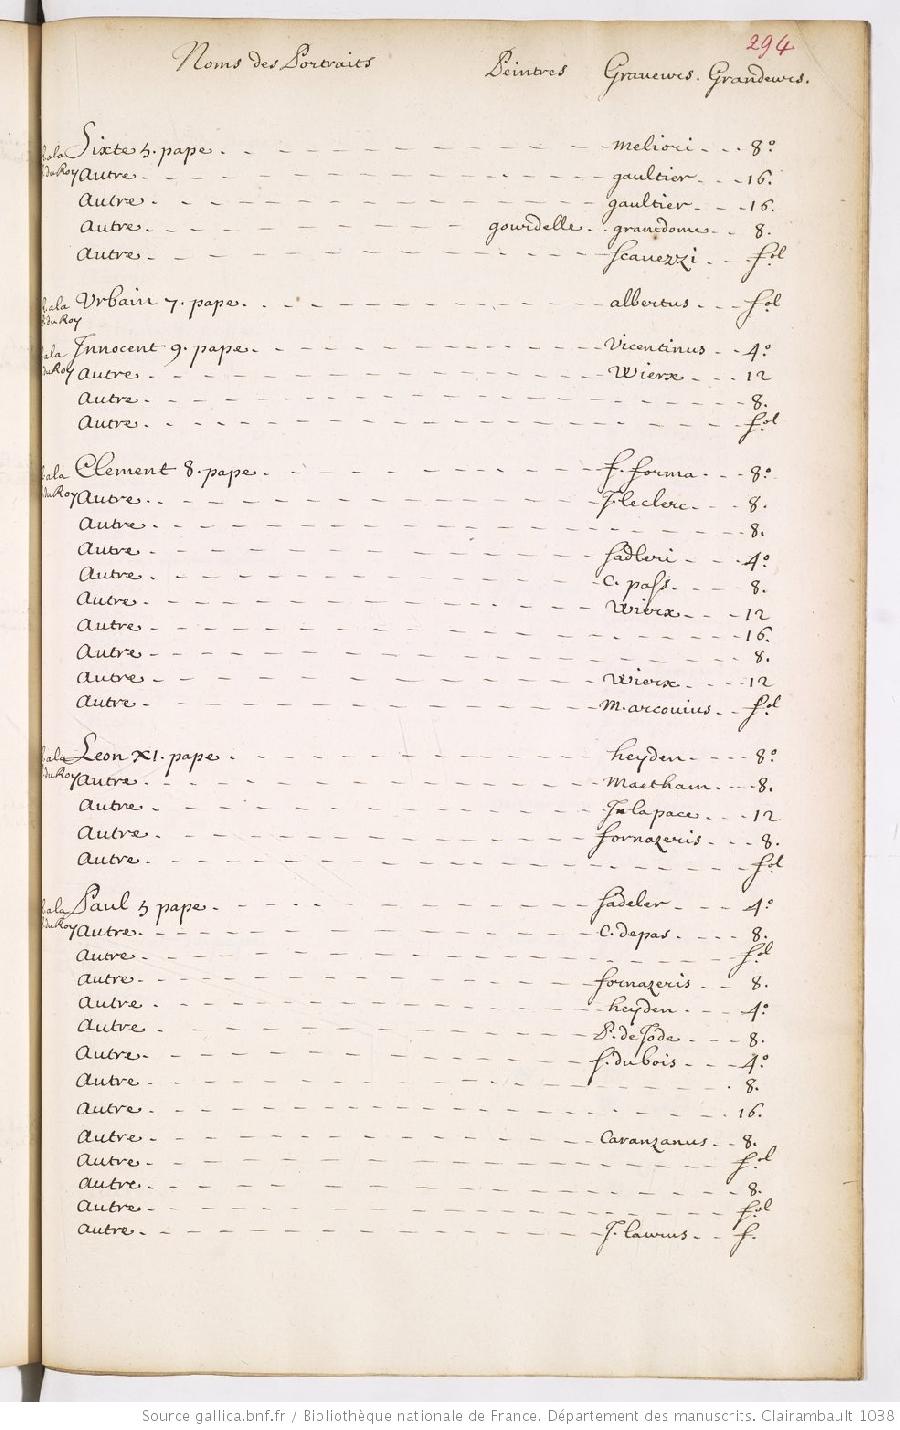 294
Noms des Portraits Peintres Graveurs. Grandeurs.
Sixte 5. pape. meliori 8.º
Autre gaultier 16.
Autre. gaultier 16.
Autre. gourdelle. grandome 8.
Autre. Scavezzi fol
Urbain 7. pape. albertus fol
Innocent 9. pape. Vicentinus 4.º
Autre. Wierx 12
Autre. 8.
Autre. fol
Clement 8. pape. f. forma 8.º
Autre. J. leclerc 8.
Autre 8.
Autre. Sadleri 4.º
Autre. C. pass. 8.
Autre. Wierx 12
Autre. 16.
Autre. 8.
Autre. Wierx 12
Autre. Marcovius fol
Leon XI. pape. heyden 8.º
Autre. Matham 8.
Autre. 12
Autre. fornazeris 8.
Autre. fol
Paul 5 pape. Sadeler 4.º
Autre. C. depas. 8.
Autre. fol
Autre. fornazeris 8.
Autre. heyden 4.º
Autre. P. de Jode 8.
Autre. f. dubois 4.º
Autre. 8.
Autre. 16.
Autre. Caranzanus 8.
Autre. fol
Autre. 8.
Autre. fol
Autre. J. laurus f.
Source gallica.bnf.fr / Bibliothèque nationale de France. Département des manuscrits. Clairambault 1038